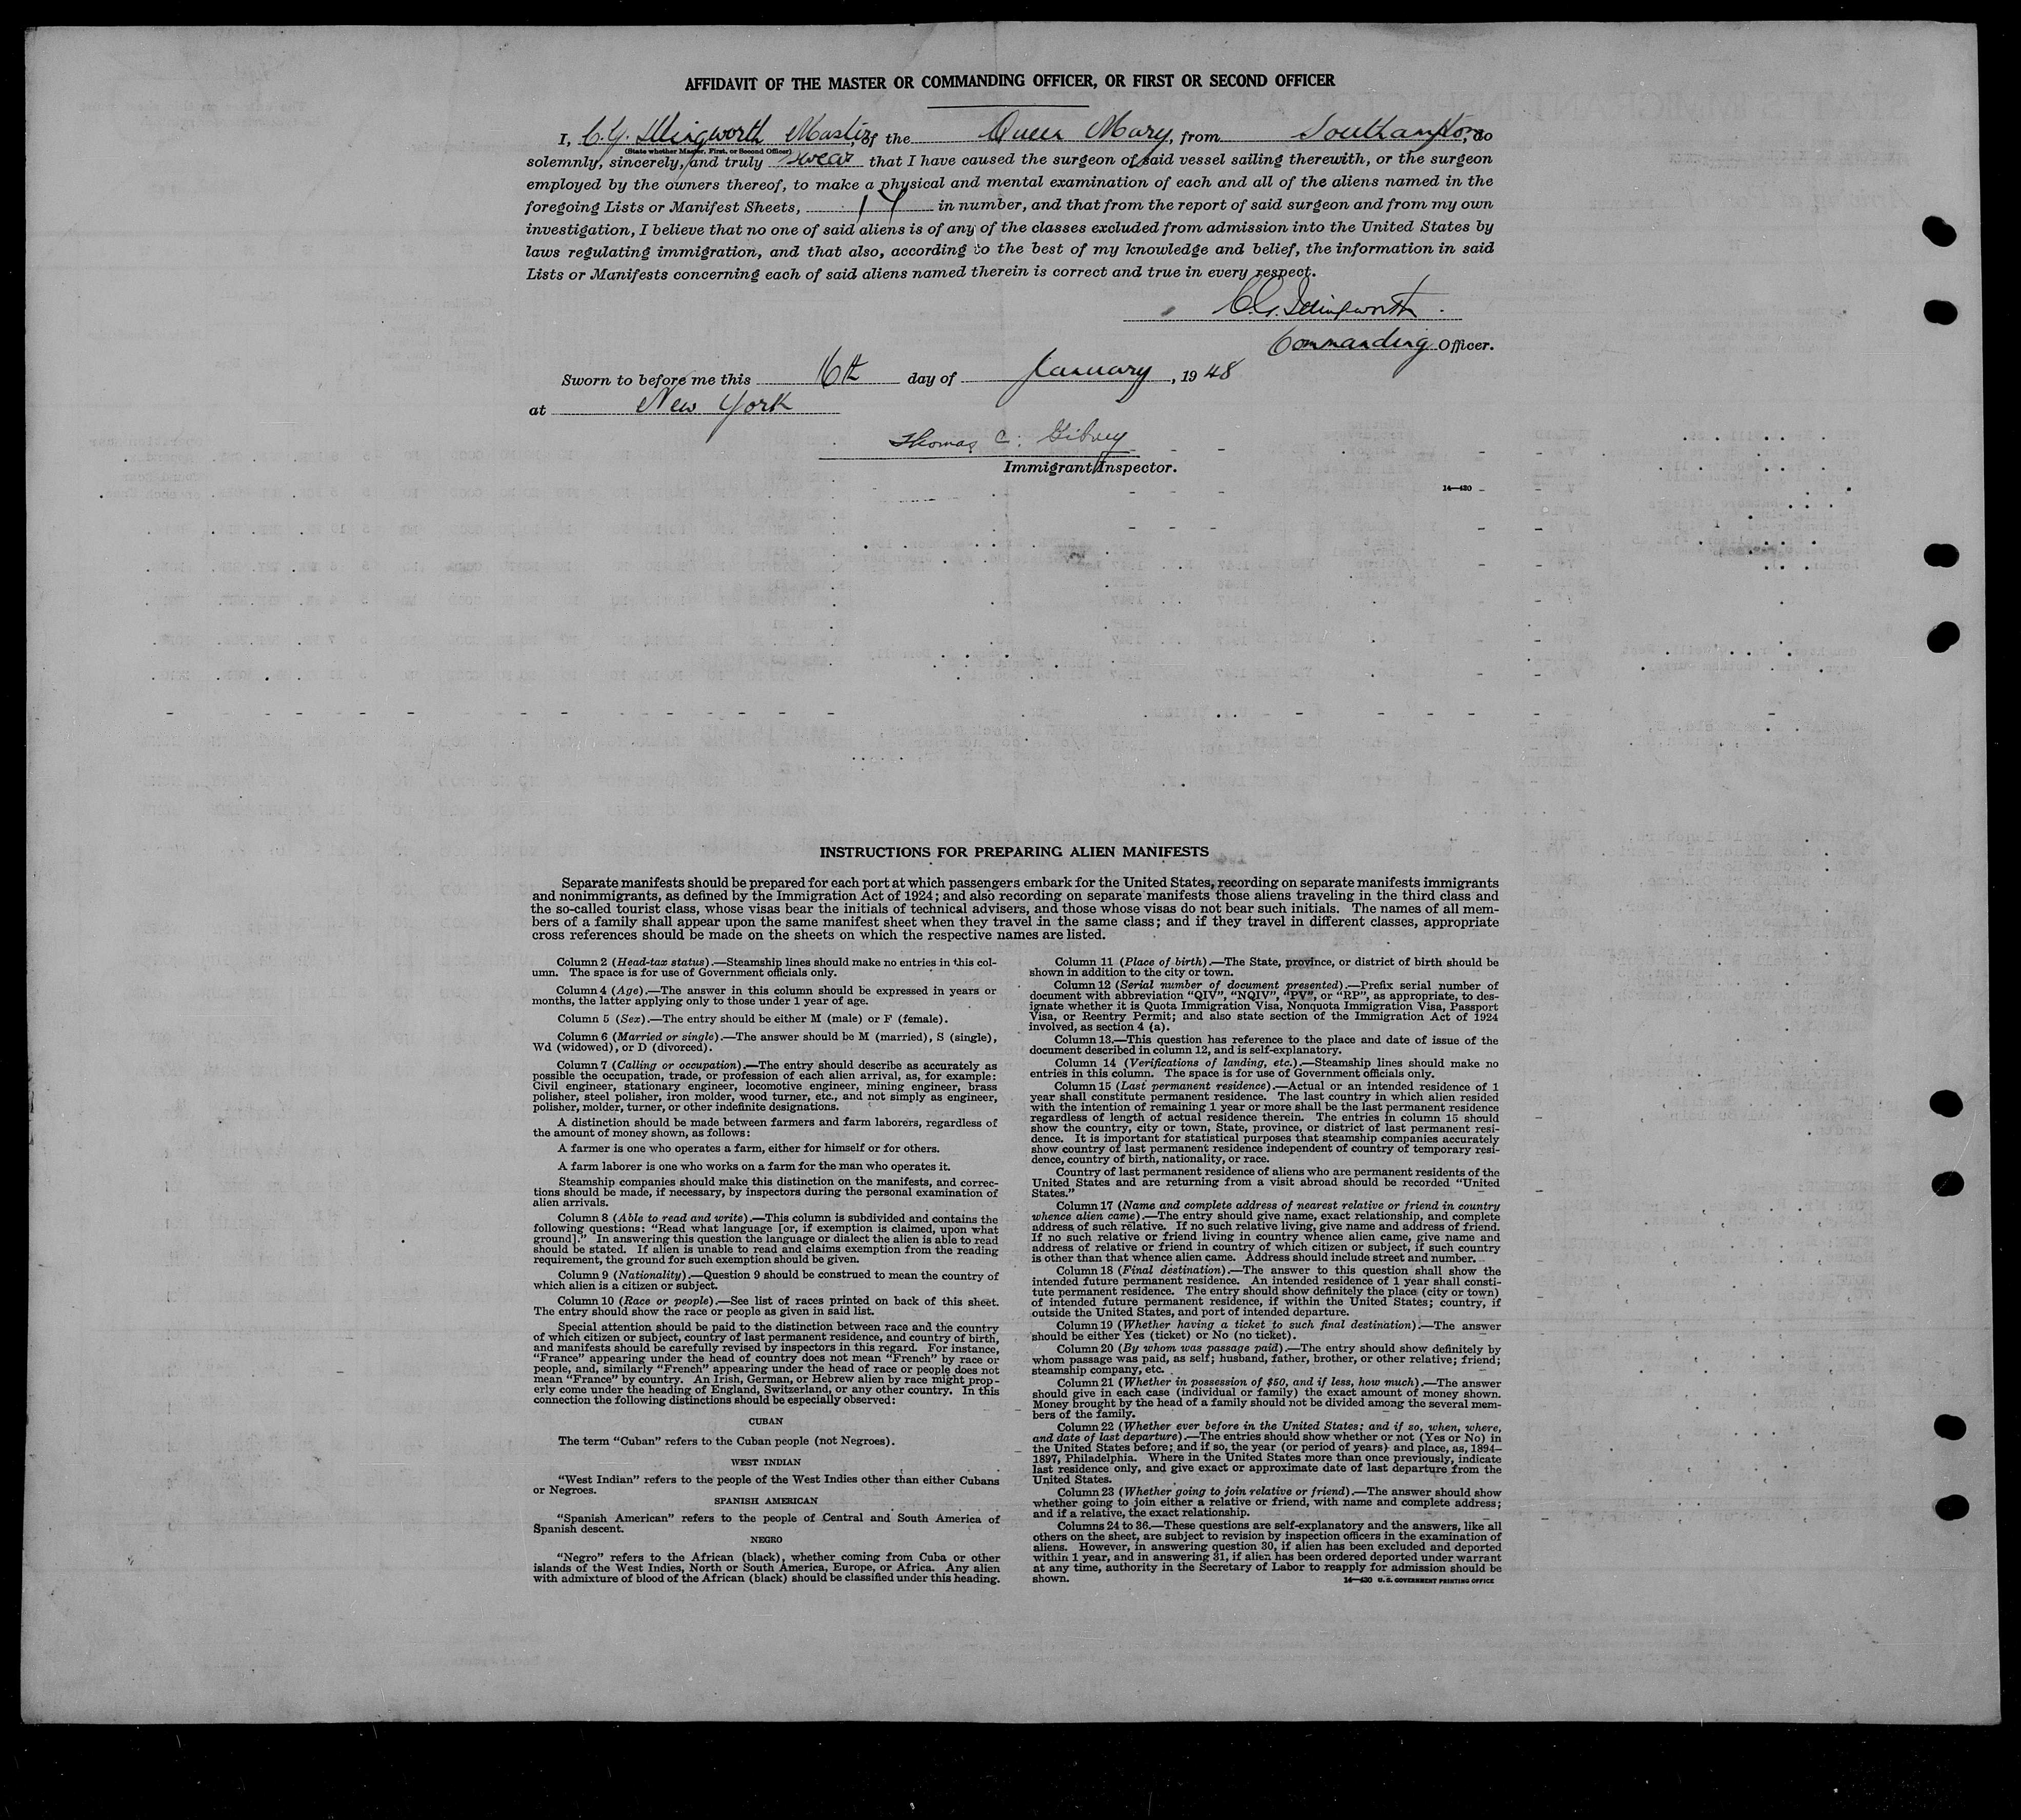 AFFIDAVIT OF THE MASTER OR COMMANDING OFFICER, OR FIRST OR SECOND OFFICER
I, C.G. Illingworth Master, of the Queen Mary, from Southampton, do
(State whether Master, First, or Second Officer)
solemnly, sincerely, and truly swear that I have caused the surgeon of said vessel sailing therewith, or the surgeon
employed by the owners thereof, to make a physical and mental examination of each and all of the aliens named in the
foregoing Lists or Manifest Sheets, 17 in number, and that from the report of said surgeon and from my own
investigation, I believe that no one of said aliens is of any of the classes excluded from admission into the United States by
laws regulating immigration, and that also, according to the best of my knowledge and belief, the information in said
Lists or Manifests concerning each of said aliens named therein is correct and true in every respect.
C.G. Illingworth.
Commanding Officer.
Sworn to before me this 16th day of January, 1948
at New York
Thomas C. Gibney
Immigrant Inspector.
14—430
INSTRUCTIONS FOR PREPARING ALIEN MANIFESTS
Separate manifests should be prepared for each port at which passengers embark for the United States, recording on separate manifests immigrants
and nonimmigrants, as defined by the Immigration Act of 1924; and also recording on separate manifests those aliens traveling in the third class and
the so-called tourist class, whose visas bear the initials of technical advisers, and those whose visas do not bear such initials. The names of all mem-
bers of a family shall appear upon the same manifest sheet when they travel in the same class; and if they travel in different classes, appropriate
cross references should be made on the sheets on which the respective names are listed.
Column 2 (Head-tax status).—Steamship lines should make no entries in this col-
umn. The space is for use of Government officials only.
Column 4 (Age).—The answer in this column should be expressed in years or
months, the latter applying only to those under 1 year of age.
Column 5 (Sex).—The entry should be either M (male) or F (female).
Column 6 (Married or single).—The answer should be M (married), S (single),
Wd (widowed), or D (divorced).
Column 7 (Calling or occupation).—The entry should describe as accurately as
possible the occupation, trade, or profession of each alien arrival, as, for example:
Civil engineer, stationary engineer, locomotive engineer, mining engineer, brass
polisher, steel polisher, iron molder, wood turner, etc., and not simply as engineer,
polisher, molder, turner, or other indefinite designations.
A distinction should be made between farmers and farm laborers, regardless of
the amount of money shown, as follows:
A farmer is one who operates a farm, either for himself or for others.
A farm laborer is one who works on a farm for the man who operates it.
Steamship companies should make this distinction on the manifests, and correc-
tions should be made, if necessary, by inspectors during the personal examination of
alien arrivals.
Column 8 (Able to read and write).—This column is subdivided and contains the
following questions: "Read what language [or, if exemption is claimed, upon what
ground]." In answering this question the language or dialect the alien is able to read
should be stated. If alien is unable to read and claims exemption from the reading
requirement, the ground for such exemption should be given.
Column 9 (Nationality).—Question 9 should be construed to mean the country of
which alien is a citizen or subject.
Column 10 (Race or people).—See list of races printed on back of this sheet.
The entry should show the race or people as given in said list.
Special attention should be paid to the distinction between race and the country
of which citizen or subject, country of last permanent residence, and country of birth,
and manifests should be carefully revised by inspectors in this regard. For instance,
"France" appearing under the head of country does not mean "French" by race or
people, and, similarly "French" appearing under the head of race or people does not
mean "France" by country. An Irish, German, or Hebrew alien by race might prop-
erly come under the heading of England, Switzerland, or any other country. In this
connection the following distinctions should be especially observed:
CUBAN
The term "Cuban" refers to the Cuban people (not Negroes).
WEST INDIAN
"West Indian" refers to the people of the West Indies other than either Cubans
or Negroes.
SPANISH AMERICAN
"Spanish American" refers to the people of Central and South America of
Spanish descent.
NEGRO
"Negro" refers to the African (black), whether coming from Cuba or other
islands of the West Indies, North or South America, Europe, or Africa. Any alien
with admixture of blood of the African (black) should be classified under this heading.
Column 11 (Place of birth).—The State, province, or district of birth should be
shown in addition to the city or town.
Column 12 (Serial number of document presented).—Prefix serial number of
document with abbreviation "QIV", "NQIV", "PV", or "RP", as appropriate, to des-
ignate whether it is Quota Immigration Visa, Nonquota Immigration Visa, Passport
Visa, or Reentry Permit; and also state section of the Immigration Act of 1924
involved, as section 4 (a).
Column 13.—This question has reference to the place and date of issue of the
document described in column 12, and is self-explanatory.
Column 14 (Verifications of landing, etc.).—Steamship lines should make no
entries in this column. The space is for use of Government officials only.
Column 15 (Last permanent residence).—Actual or an intended residence of 1
year shall constitute permanent residence. The last country in which alien resided
with the intention of remaining 1 year or more shall be the last permanent residence
regardless of length of actual residence therein. The entries in column 15 should
show the country, city or town, State, province, or district of last permanent resi-
dence. It is important for statistical purposes that steamship companies accurately
show country of last permanent residence independent of country of temporary resi-
dence, country of birth, nationality, or race.
Country of last permanent residence of aliens who are permanent residents of the
United States and are returning from a visit abroad should be recorded "United
States."
Column 17 (Name and complete address of nearest relative or friend in country
whence alien came).—The entry should give name, exact relationship, and complete
address of such relative. If no such relative living, give name and address of friend.
If no such relative or friend living in country whence alien came, give name and
address of relative or friend in country of which citizen or subject, if such country
is other than that whence alien came. Address should include street and number.
Column 18 (Final destination).—The answer to this question shall show the
intended future permanent residence. An intended residence of 1 year shall consti-
tute permanent residence. The entry should show definitely the place (city or town)
of intended future permanent residence, if within the United States; country, if
outside the United States, and port of intended departure.
Column 19 (Whether having a ticket to such final destination).—The answer
should be either Yes (ticket) or No (no ticket).
Column 20 (By whom was passage paid).—The entry should show definitely by
whom passage was paid, as self; husband, father, brother, or other relative; friend;
steamship company, etc.
Column 21 (Whether in possession of $50, and if less, how much).—The answer
should give in each case (individual or family) the exact amount of money shown.
Money brought by the head of a family should not be divided among the several mem-
bers of the family.
Column 22 (Whether ever before in the United States; and if so, when, where,
and date of last departure).—The entries should show whether or not (Yes or No) in
the United States before; and if so, the year (or period of years) and place, as, 1894–
1897, Philadelphia. Where in the United States more than once previously, indicate
last residence only, and give exact or approximate date of last departure from the
United States.
Column 23 (Whether going to join relative or friend).—The answer should show
whether going to join either a relative or friend, with name and complete address;
and if a relative, the exact relationship.
Columns 24 to 36.—These questions are self-explanatory and the answers, like all
others on the sheet, are subject to revision by inspection officers in the examination of
aliens. However, in answering question 30, if alien has been excluded and deported
within 1 year, and in answering 31, if alien has been ordered deported under warrant
at any time, authority in the Secretary of Labor to reapply for admission should be
shown.
14—430 U.S. GOVERNMENT PRINTING OFFICE